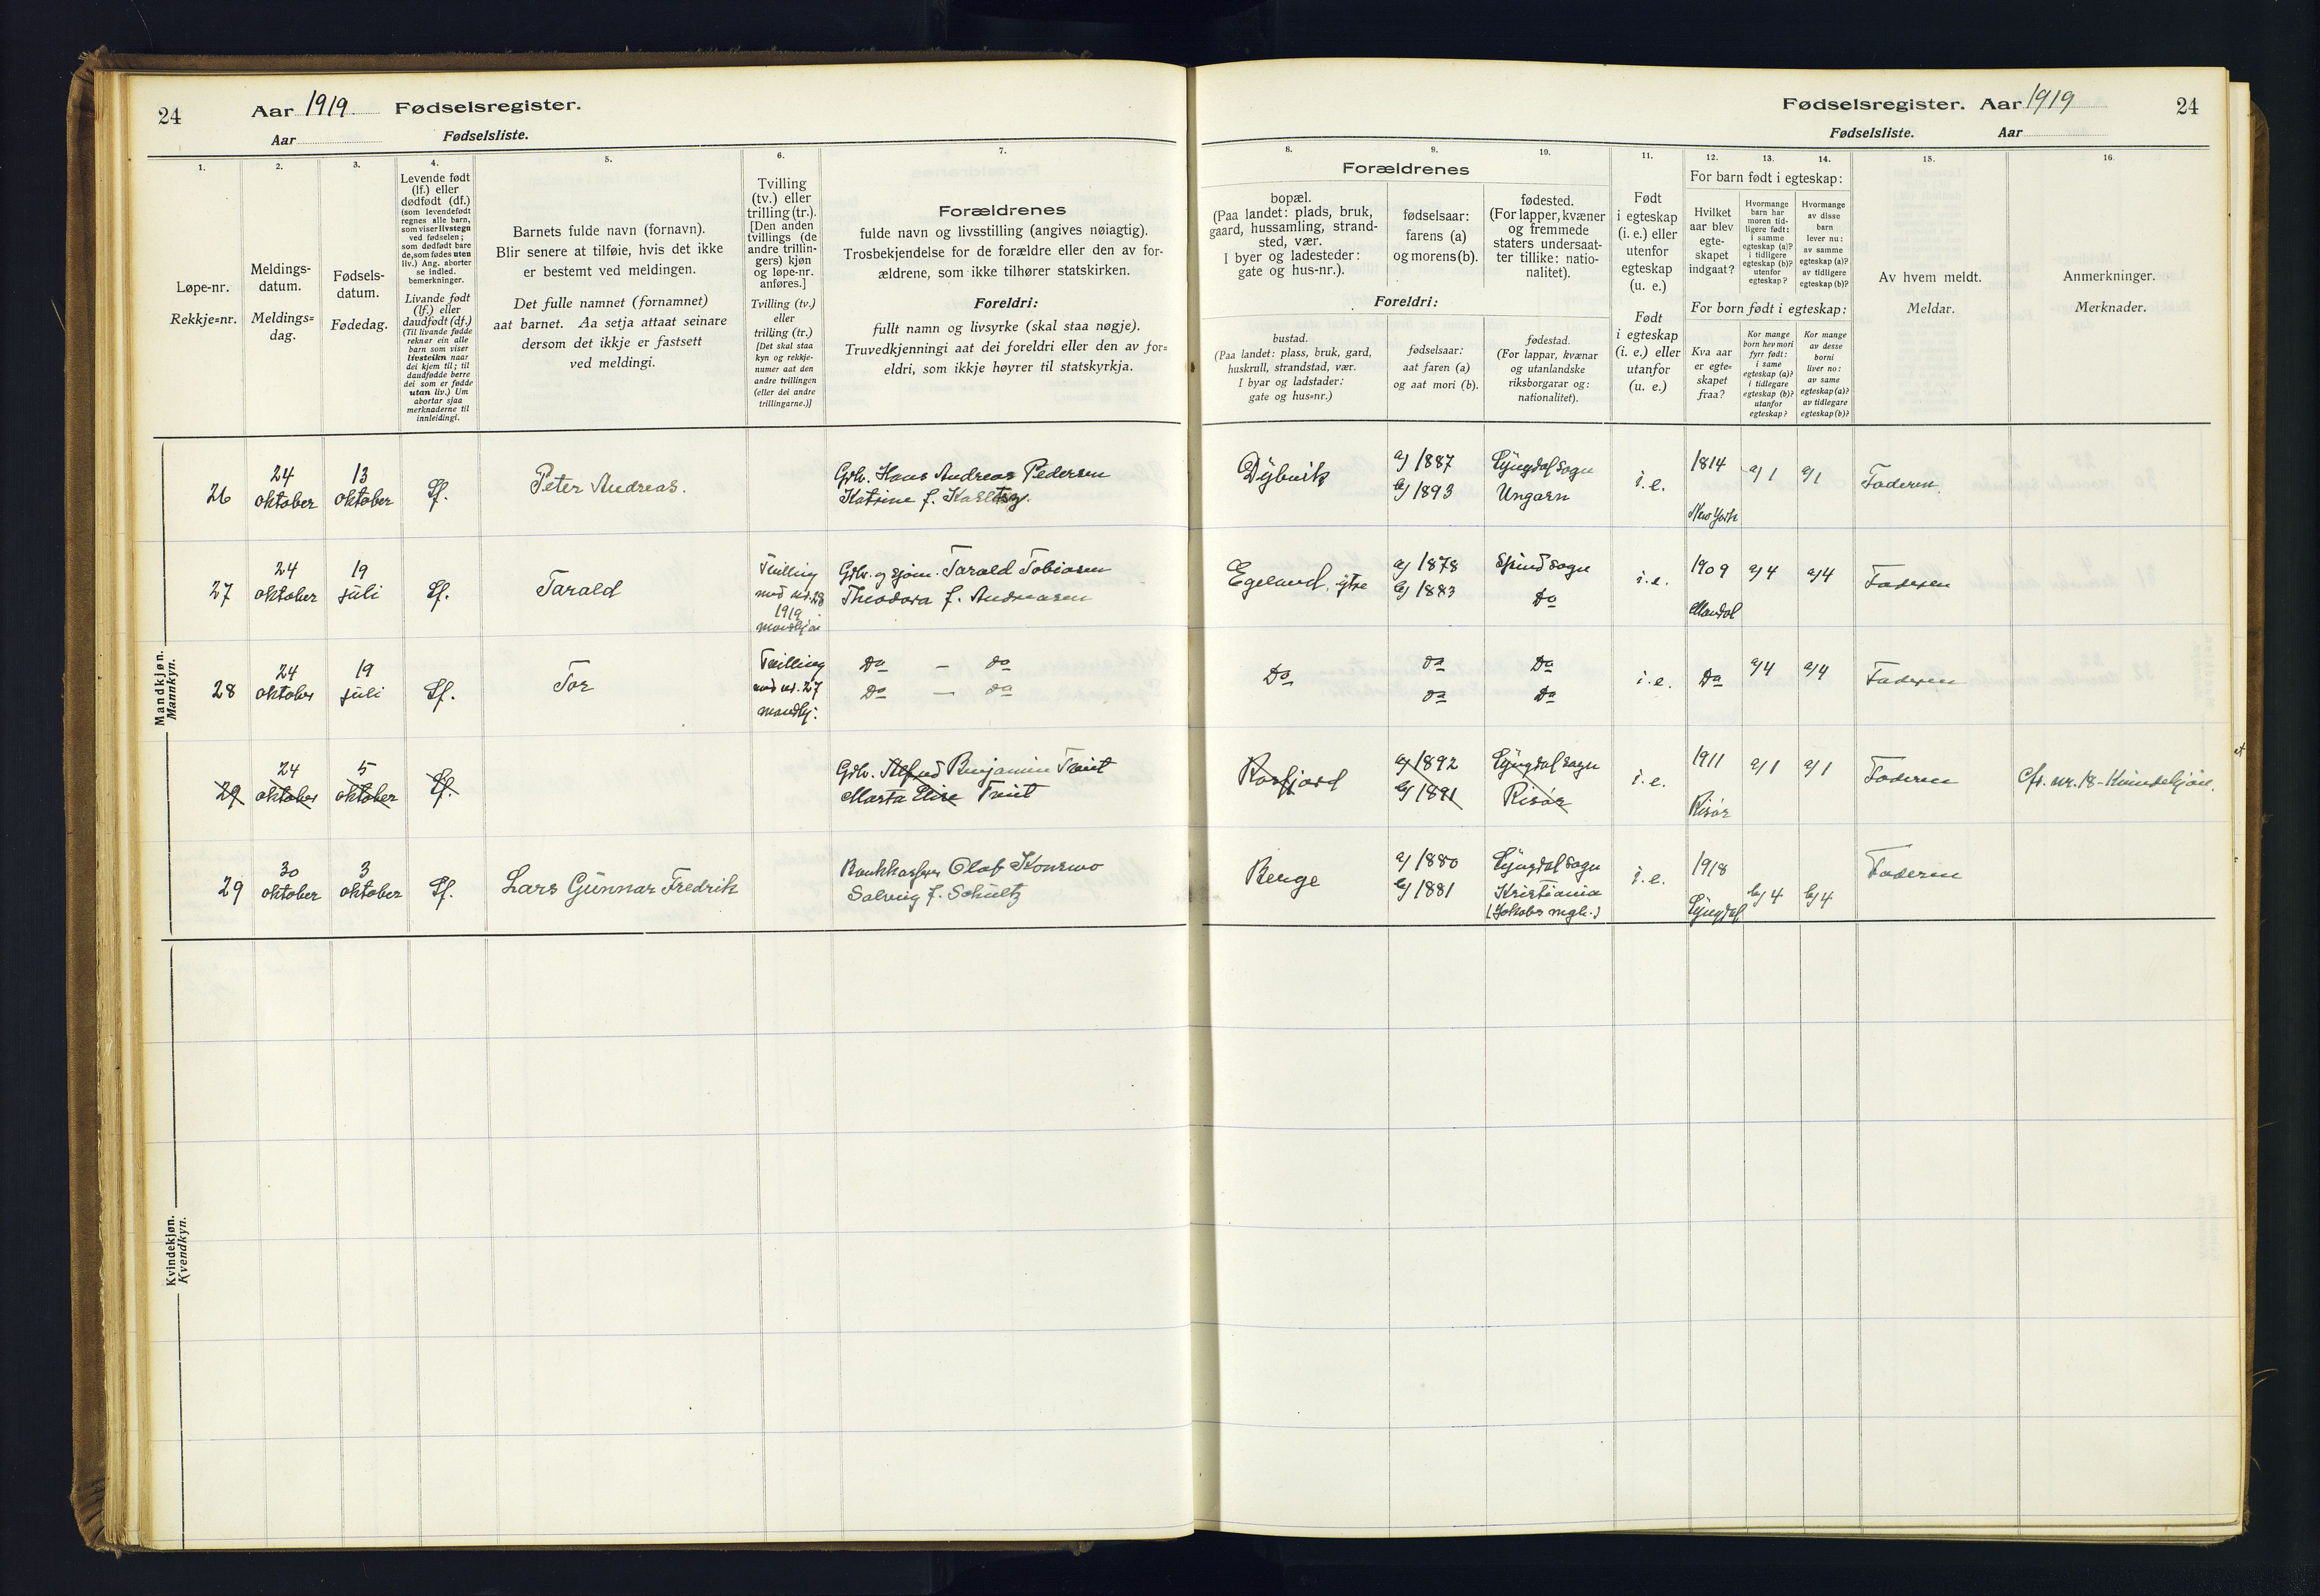 24 Aar 1919 Fødselsregister.
Aar Fødselsliste.
1.
Løpe-nr.
Rekkje=nr.
2.
Meldings-
datum.
Meldings=
dag.
3.
Fødsels-
datum.
Fødedag.
4.
Levende født
(lf.) eller
dødfødt (df.)
(som levendefødt
regnes alle barn,
som viser livstegn
ved fødselen;
som dødfødt bare
de, som fødes uten
liv.) Ang. aborter
se indled.
bemerkninger.
Livande født
(lf.) eller
daudfødt (df.)
(Til livande fødde
reknar ein alle
barn som viser
livsteikn naar
dei kjem til; til
daudfødde berre
dei som er fødde
utan liv.) Um
abortar sjaa
merknaderne til
innleidingi.
5.
Barnets fulde navn (fornavn).
Blir senere at tilføie, hvis det ikke
er bestemt ved meldingen.
Det fulle namnet (fornamnet)
aat barnet. Aa setja attaat seinare
dersom det ikkje er fastsett
ved meldingi.
6.
Tvilling
(tv.) eller
trilling (tr.).
[Den anden
tvillings (de
andre trillin-
gers) kjøn
og løpe-nr.
anføres.]
Tvilling (tv.)
eller
trilling (tr.)
[Det skal staa
kyn og rekkje-
numer aat den
andre tvillingen
(eller dei andre
trillingarne.)]
7.
Forældrenes
fulde navn og livsstilling (angives nøiagtig).
Trosbekjendelse for de forældre eller den av for-
ældrene, som ikke tilhører statskirken.
Foreldri:
fullt namn og livsyrke (skal staa nøgje).
Truvedkjenningi aat dei foreldri eller den av for=
eldri, som ikkje høyrer til statskyrkja.
Mandkjøn.
Mannkyn.
26 24 oktober 13 oktober Lf. Peter Andreas. Grb. Hans Andreas Pedersen
Katrine f.
27 24 oktober 19 juli Lf. Tarald Tvilling med nr. 28 1919 mandkjøn Grb. og sjøm. Tarald Tobiasen
Theodora f. Andreasen
28 24 oktober 19 juli Lf. Tor Tvilling med nr. 27 mandkj. Do — do
Do — do
29 24 oktober 5 oktober Lf. Grb. Alfred Benjamin
Marta Elise
29 30 oktober 3 oktober Lf. Lars Gunnar Fredrik Bankkasserer Olaf Konsmo
Solveig f. Schultz
Kvindekjøn.
Kvendkyn.
Fødselsregister. Aar 1919 24
Fødselsliste. Aar
Forældrenes
8.
bopæl.
(Paa landet: plads, bruk,
gaard, hussamling, strand-
sted, vær.
I byer og ladesteder:
gate og hus-nr.).
Foreldri:
bustad.
(Paa landet: plass, bruk, gard,
huskrull, strandstad, vær.
I byar og ladstader:
gate og hus=nr.)
9.
fødselsaar:
farens (a)
og morens (b).
fødselsaar:
aat faren (a)
og aat mori (b).
10.
fødested.
(For lapper, kvæner
og fremmede
staters undersaat-
ter tillike: natio-
nalitet).
fødestad.
(For lappar, kvænar
og utanlandske
riksborgarar og:
nationalitet).
11.
Født
i egteskap
(i. e.) eller
utenfor
egteskap
(u. e.)
Født
i egteskap
(i. e.) eller
utanfor
(u. e.)
For barn født i egteskap:
12.
Hvilket
aar blev
egte-
skapet
indgaat?
13.
Hvormange
barn har
moren tid-
ligere født:
i samme
egteskap (a)?
i tidligere
egteskap (b)?
utenfor
egteskap?
14.
Hvormange
av disse
barn
lever nu:
av samme
egteskap (a)?
av tidligere
egteskap (b)?
For born født i egteskap:
Kva aar
er egte=
skapet
fraa?
Kor mange
born hev mori
fyrr født:
i same
egteskap (a)?
i tidlegare
egteskap (b)?
utanfor
egteskap?
Kor mange
av desse
borni
liver no:
av same
egteskap (a)?
av tidlegare
egteskap (b)?
15.
Av hvem meldt.
Meldar.
16.
Anmerkninger.
Merknader.
Dybvik a) 1887 Lyngdal sogn i.e. 1814 a) 1 a) 1 Faderen.
b) 1893 Ungarn New York
Egeland, ytre a) 1878 Spind sogn i.e. 1909 a) 4 a) 4 Faderen
b) 1883 Do Mandal
Do do Do i.e. Do a) 4 a) 4 Faderen
do Do
Rosfjord a) 1892 Lyngdal sogn i.e. 1911 a) 1 a) 1 Faderen Cfr. nr. 18 - Kvindekjøn.
b) 1891 Risør Risør
Berge a) 1880 Lyngdal sogn i.e. 1918 Faderen
b) 1881 Kristiania b) 4 b) 4
(Jakobs mgh.) Lyngdal